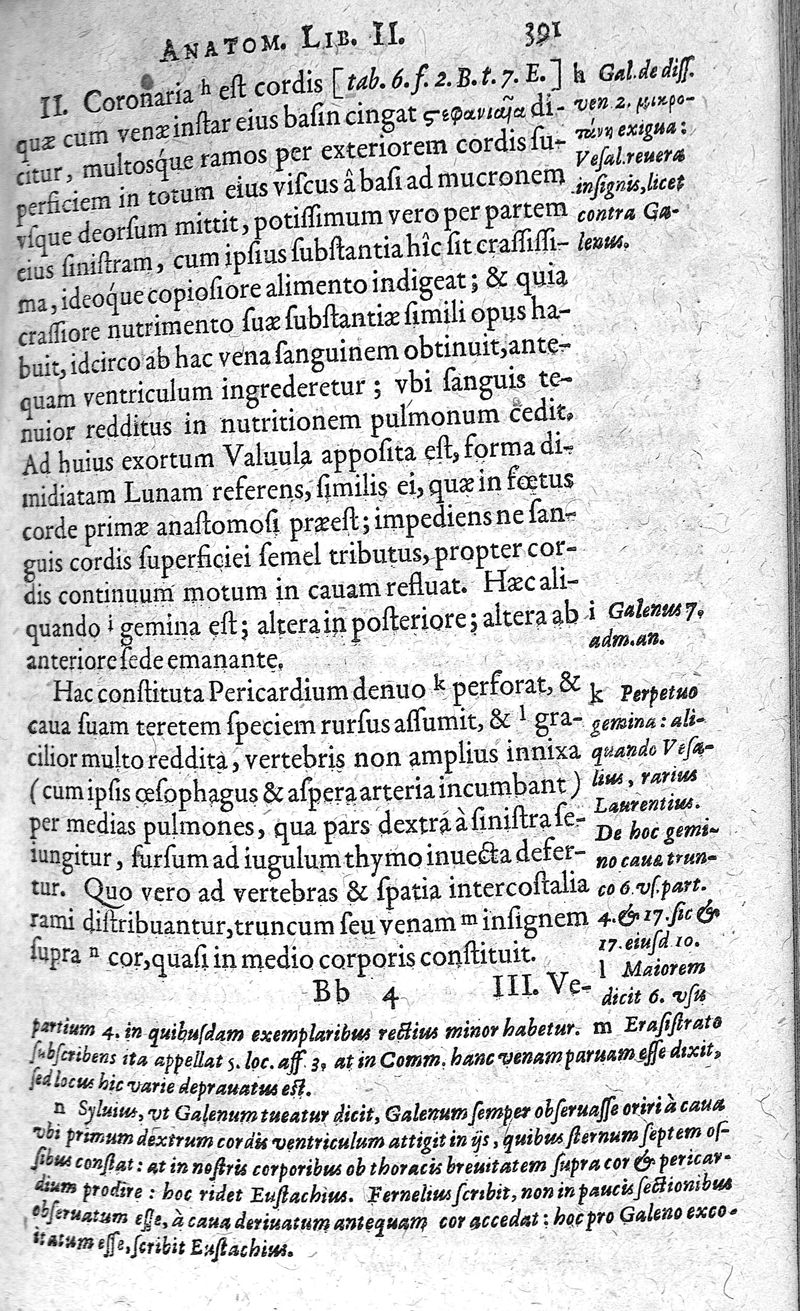 ANATOM. LIB. II. 391
II. Coronaria h eſt cordis [tab. 6. f. 2. B. t. 7. E.]
quæ cum venæ inſtar eius baſin cingat ϛεφανιαῖα di-
citur, multosq́ue ramos per exteriorem cordis ſu-
perficiem in totum eius viſcus â baſi ad mucronem
vſque deorſum mittit, potiſſimum vero per partem
eius ſiniſtram, cum ipſius ſubſtantia hîc ſit craſſiſſi-
ma, ideoque copioſiore alimento indigeat; & quia
craſſiore nutrimento ſuæ ſubſtantiæ ſimili opus ha-
buit, idcirco ab hac vena ſanguinem obtinuit, ante-
quam ventriculum ingrederetur; vbi ſanguis te-
nuior redditus in nutritionem pulmonum cedit.
Ad huius exortum Valuula appoſita eſt, forma di-
midiatam Lunam referens, ſimilis ei, quæ in fœtus
corde primæ anaſtomoſi præeſt; impediens ne ſan-
guis cordis ſuperficiei ſemel tributus, propter cor-
dis continuum motum in cauam refluat. Hæc ali-
quando i gemina eſt; altera in poſteriore; altera ab
anteriore ſede emanante.
Hac conſtituta Pericardium denuo k perforat, &
caua ſuam teretem ſpeciem rurſus aſſumit, & l gra-
cilior multo reddita, vertebris non amplius innixa
(cum ipſis œſophagus & aſpera arteria incumbant)
per medias pulmones, qua pars dextra à ſiniſtra ſe-
iungitur, ſurſum ad iugulum thymo inuecta defer-
tur. Quo vero ad vertebras & ſpatia intercoſtalia
rami diſtribuantur, truncum ſeu venam m inſignem
ſupra n cor, quaſi in medio corporis conſtituit.
Bb 4 III. Ve-
h Gal. de diſſ.
ven 2. μικρο-
exigua:
Veſal. reuera
inſignis, licet
contra Ga-
lenus.
i Galenus 7.
adm. an.
k Perpetuo
gemina: ali-
quando Veſa-
lius, rarius
Laurentius.
De hoc gemi-
no cauæ trun-
co 6. vſ. part.
4. & 17. ſic &
17. eiuſd 10.
l Maiorem
dicit 6. vſu
partium 4. in quibuſdam exemplaribus rectius minor habetur. m Eraſiſtrato
ſubſcribens ita appellat 5. loc. aff. 3, at in Comm. hanc venam paruam eſſe dixit,
ſed locus hic varie deprauatus eſt.
n Syluius, vt Galenum tueatur dicit, Galenum ſemper obſeruaſſe oriri à caua
vbi primum dextrum cordis ventriculum attigit in ijs, quibus ſternum ſeptem oſ-
ſibus conſtat: at in noſtris corporibus ob thoracis breuitatem ſupra cor & pericar-
dium prodire: hoc ridet Euſtachius. Fernelius ſcribit, non in paucis ſectionibus
obſeruatum eſſe, à caua deriuatum antequam cor accedat: hoc pro Galeno exco-
itatum eſſe, ſcribit Euſtachius.